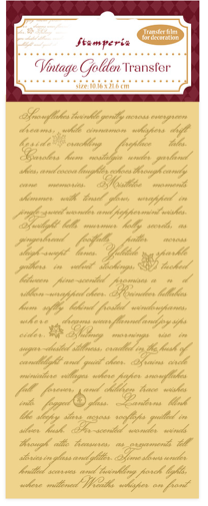 stamperia
Transfer film
for decoration
Vintage Golden Transfer
size-10.16 x 21.6 cm
Snowflakes twinkle gently across evergreen
dreams, while cinnamon whispers drift
beside crackling fireplace tales.
Garders hum nostalgia under garland
skies, and cocoa laughter echoes through candy
cane memories. Mistletoe moments
shimmer with tinsel glow, wrapped in
jingle-sweet wonder and peppermint wishes.
Twilight bells murmur holly secrets, as
gingerbread footfalls patter across
sleigh-swept lanes. Yuletide sparkle
gathers in velvet stockings, tucked
between pine-scented promises and
ribbon-wrapped cheer. Reindeer lullabies
hum softly behind frosted windowpanes,
where dreams wear flannel and joy sips
cider. Nutmeg mornings rise in
sugar-dusted stillness, cradled in the hush of
candlelight and quiet cheer. Trains circle
miniature villages where paper snowflakes
fall forever, and children trace wishes
into fogged glass. Lanterns blush
like sleepy stars across rooftops quilted in
silver hush. Fir-scented wonder winds
through attic treasures, as ornaments tell
stories in glass and glitter. Time slows under
knitted scarves and twinkling porch lights,
where mittened Wreaths whisper on front